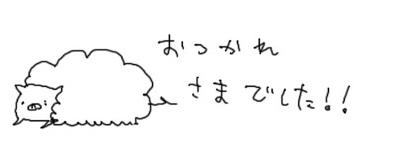 おつかれ
さまでした!!